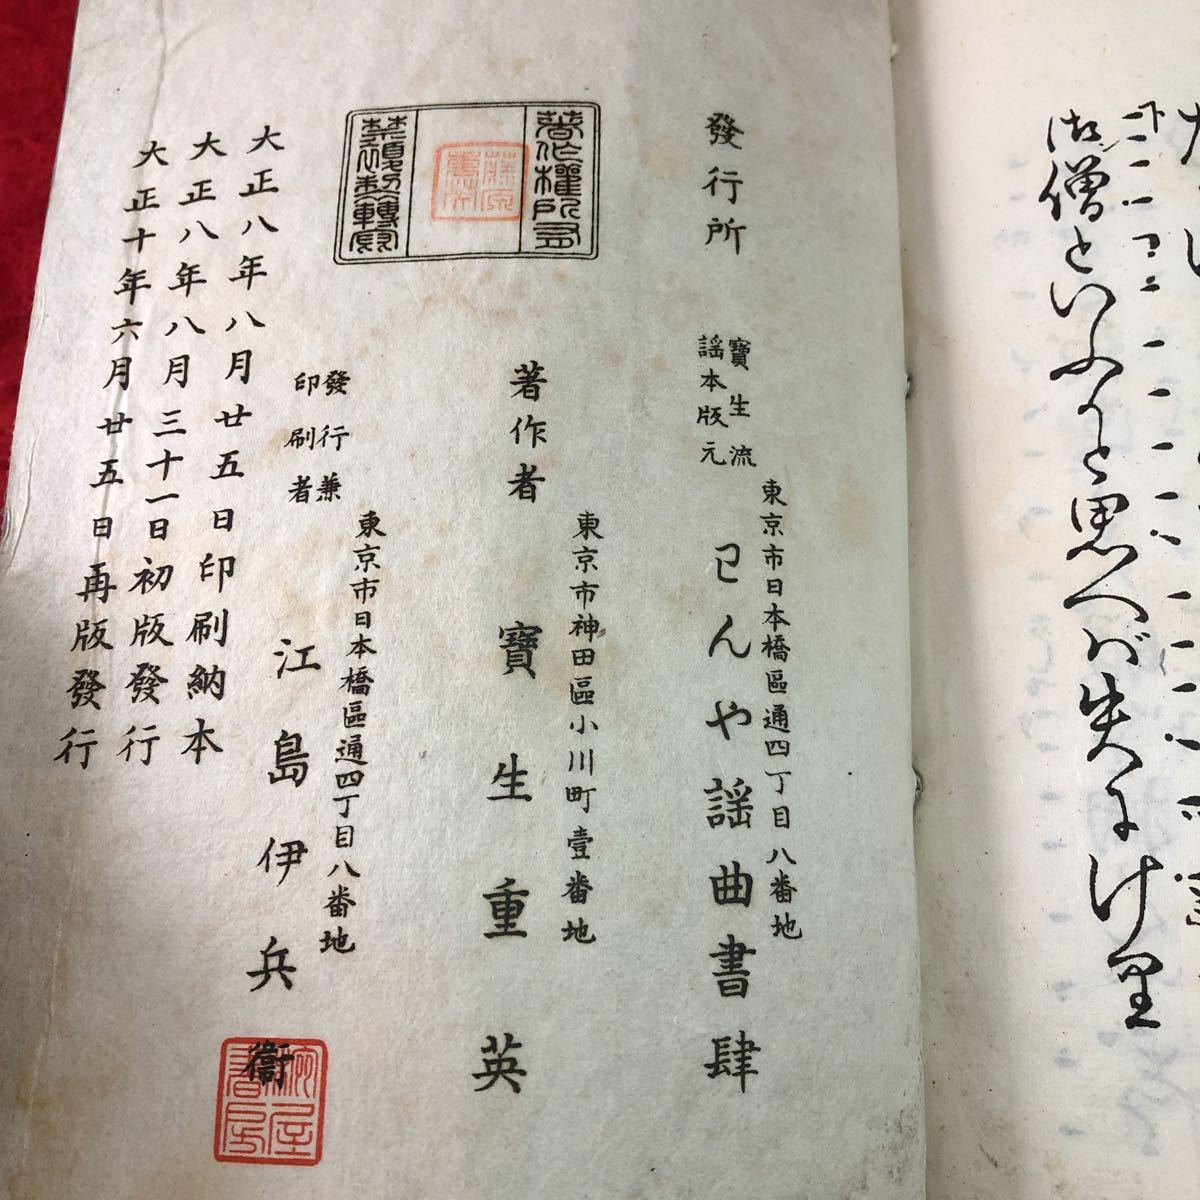 御僧といふかと思へば失にけり
發行所
寶生流
謡本版元
東京市日本橋區通四丁目八番地
わんや謡曲書肆
著作權所有
禁複製轉寫
著作者
東京市神田區小川町壹番地
寶生重英
發行兼
印刷者
東京市日本橋區通四丁目八番地
江島伊兵衞
大正八年八月廿五日印刷納本
大正八年八月三十一日初版發行
大正十年六月廿五日再版發行